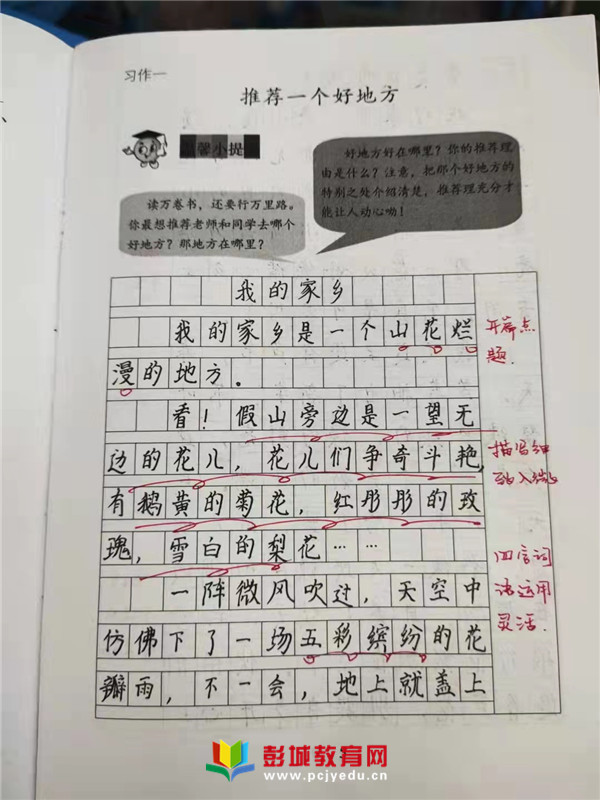 习作一
推荐一个好地方
馨小提
好地方好在哪里？你的推荐理
由是什么？注意，把那个好地方的
特别之处介绍清楚，推荐理充分才
能让人动心呦！
读万卷书，还要行万里路。
你最想推荐老师和同学去哪个
好地方？那地方在哪里？
我的家乡
我的家乡是一个山花烂
漫的地方。
看！假山旁边是一望无
边的花儿，花儿们争奇斗艳，
有鹅黄的菊花，红彤彤的玫
瑰，雪白的梨花……
一阵微风吹过，天空中
仿佛下了一场五彩缤纷的花
瓣雨，不一会，地上就盖上
开篇点
题.
描写细
入
四言词
语运用
灵活.
彭城教育网
www.pcjyedu.cn